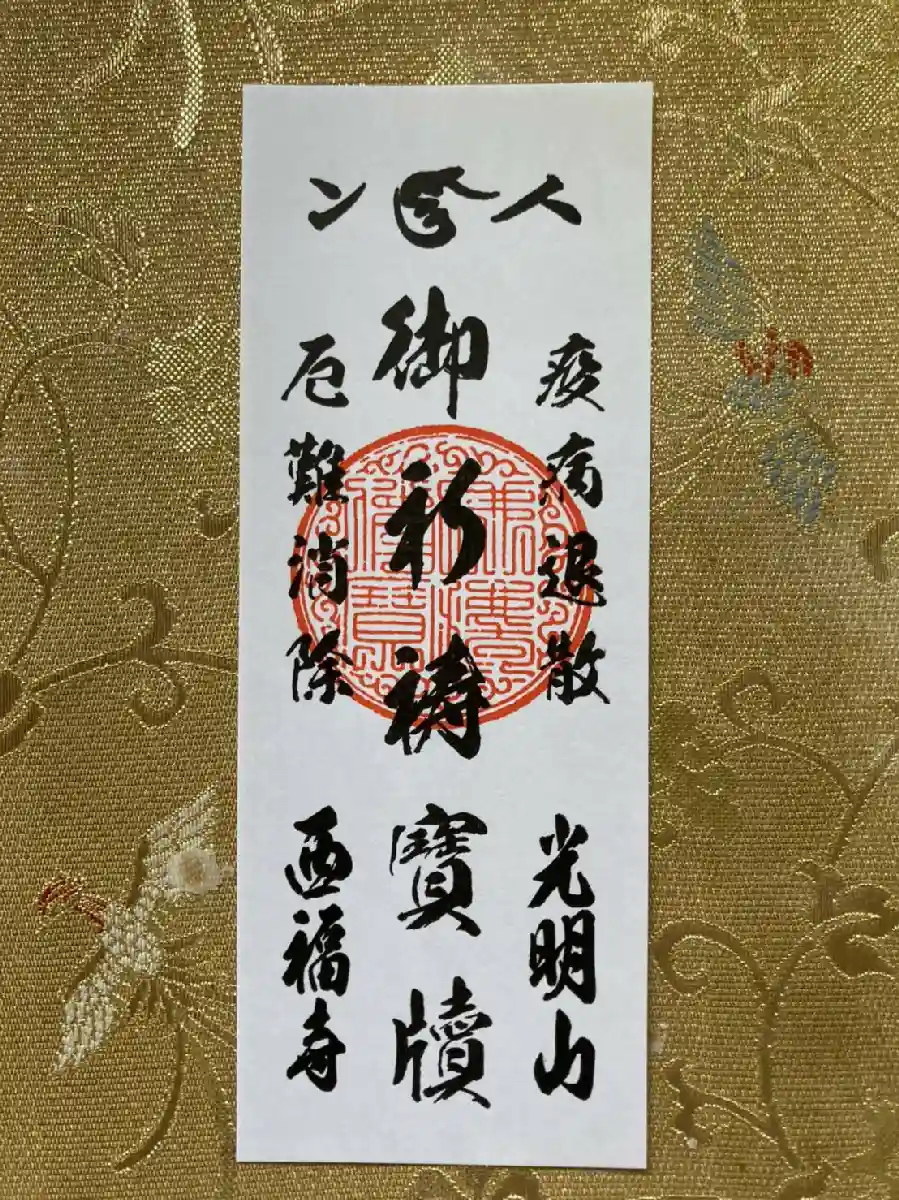 疫病退散 光明山
御祈祷寶牘
厄難消除 西福寺